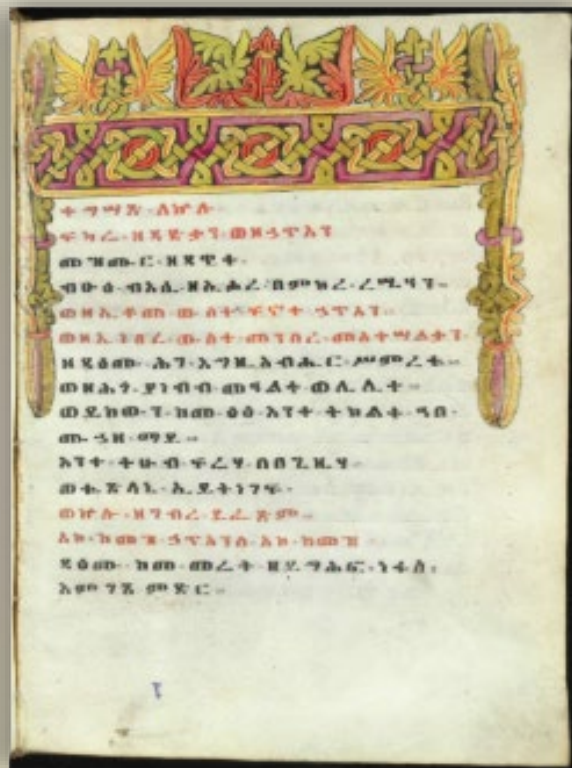 ተግሣጽ ፡ ለኵሉ
ፍካሬ ፡ ዘጻድቃን ፡ ወዘኃጥኣን
መዝሙር ፡ ዘዳዊት ፡
ብፁዕ ፡ ብእሲ ፡ ዘኢሖረ ፡ በምክረ ፡ ረሲዓን ።
ወዘኢቆመ ፡ ውስተ ፡ ፍኖተ ፡ ኃጥኣን ።
ወዘኢነበረ ፡ ውስተ ፡ መንበረ ፡ መስተሣልቃን
ዘዳዕሙ ፡ ሕገ ፡ እግዚአብሔር ፡ ሥምረቱ ።
ወዘሕጎ ፡ ያነብብ ፡ መዓልተ ፡ ወሌሊተ ።
ወይከውን ፡ ከመ ፡ ዕፅ ፡ እንተ ፡ ትክልት ፡ ኀበ ፡
ሙኃዘ ፡ ማይ ።
እንተ ፡ ትሁብ ፡ ፍሬሃ ፡ በበጊዜሃ ።
ወቈጽላኒ ፡ ኢይትነገፍ ።
ወኵሎ ፡ ዘገብረ ፡ ይፌጽም ።
አኮ ፡ ከመዝ ፡ ኃጥኣንሰ ፡ አኮ ፡ ከመዝ
ዳዕሙ ፡ ከመ ፡ መሬት ፡ ዘይግሕፎ ፡ ነፋስ ፡
እምገጸ ፡ ምድር ።
1